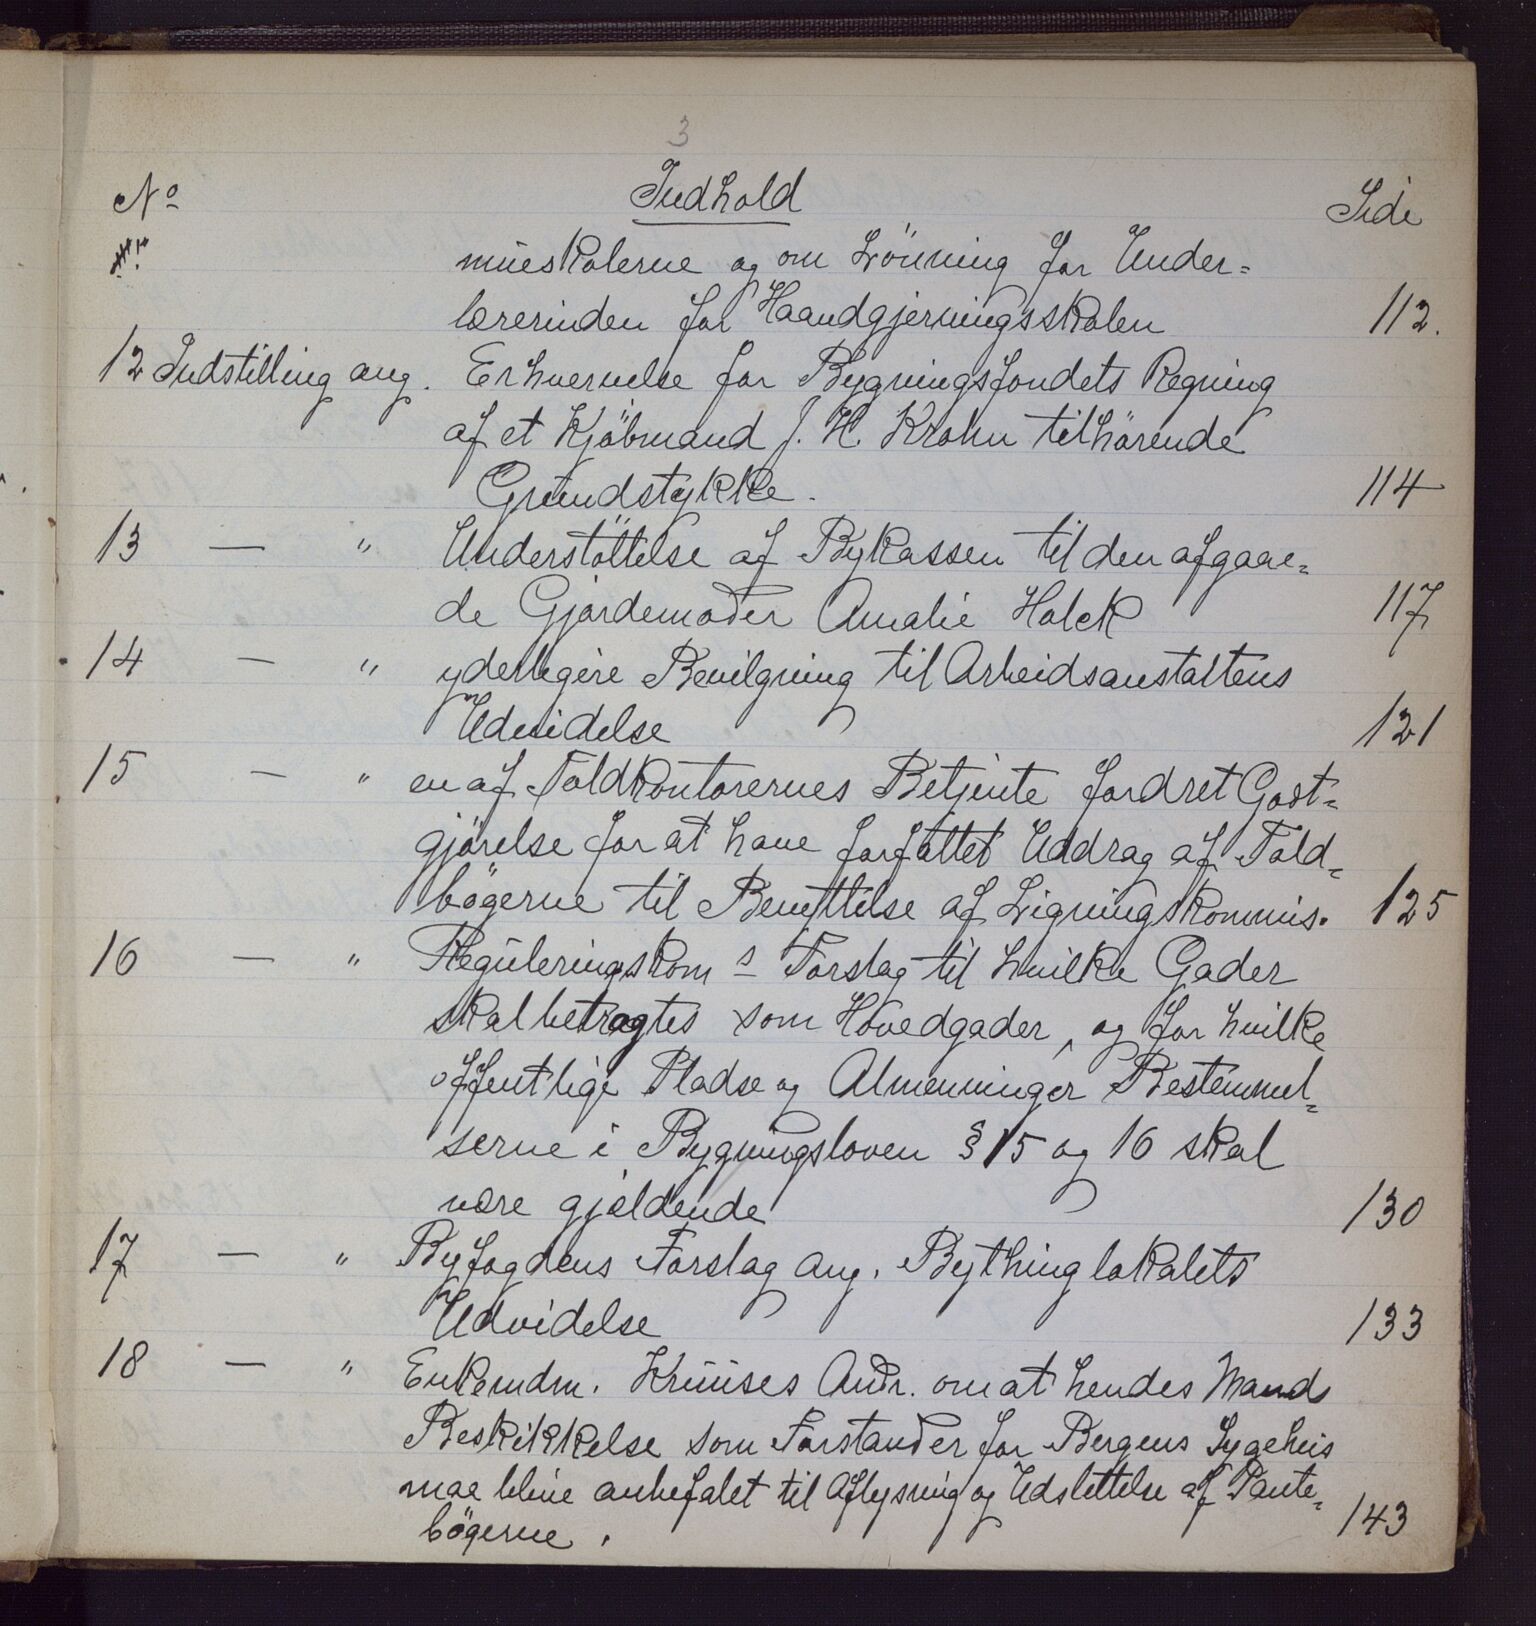 3
No Indhold Side
mueskolerne og om Lönning for Under=
lærerinden for Haandgjerningsskolen 112.
12 Indstilling ang. Erhvervelse for Bygningsfondets Regning
af et Kjöbmand J. H. Krohn tilhörende
Grundstykke. 114
13 — " Understöttelse af Bykassen til den afgaae=
de Gjordemoder Amalie Holck 117
14 — " yderligere Bevilgning til Arbeidsanstaltens
Udvidelse 121
15 — " en af Toldkontorernes Betjente fordret Godt=
gjörelse for at have forfattet Uddrag af Told=
bögerne til Benyttelse af Ligningskommis. 125
16 — " Reguleringskom s Forslag til hvilke Gader
skal betragtes som Hovedgader, og for hvilke
offentlige Pladse og Almenninger Bestemmel=
serne i Bygningsloven § 15 og 16 skal
være gjældende 130
17 — " Byfogdens Forslag ang. Bythinglokalets
Udvidelse 133
18 — " Enkemdm. Kruuses Andr. om at hendes Mands
Beskikkelse som Forstander for Bergens Sygehus
maa blive anbefalet til Aflysning og Udslettelse af Pante=
bögerne. 143